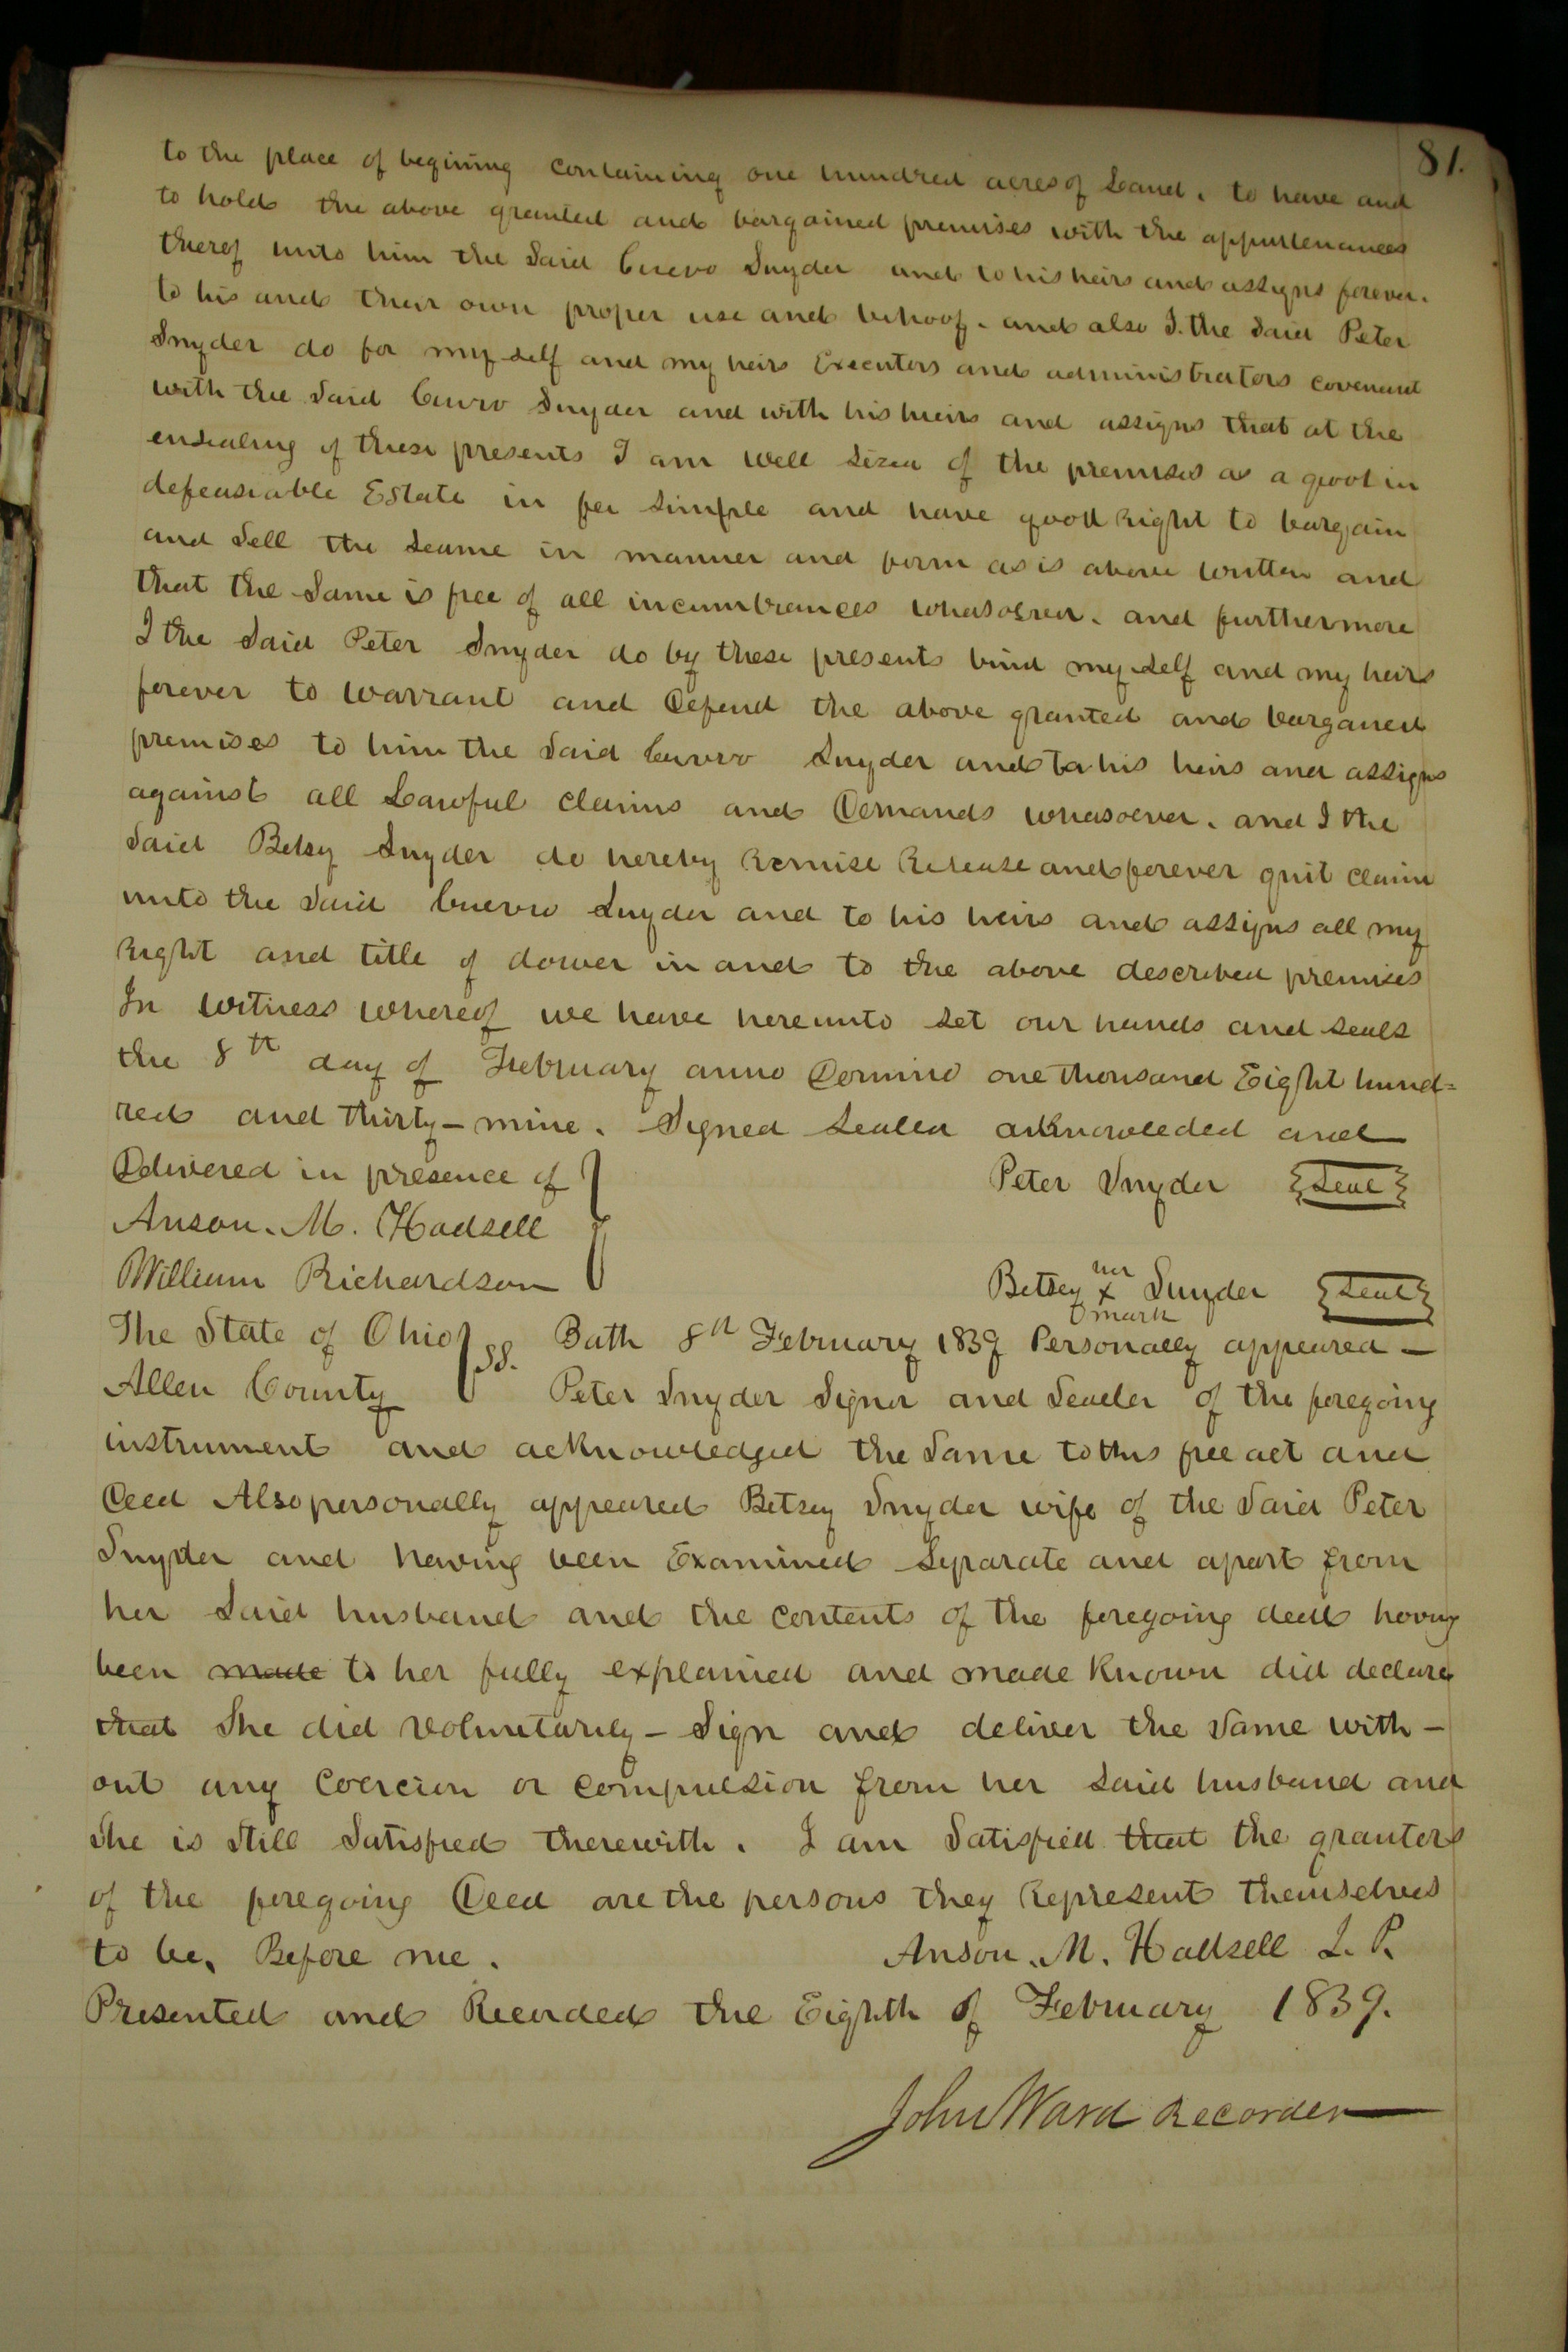 81.
to the place of begining containing one hundred acres of Land. to have and
to hold the above granted and bargained premises with the appurtenances
therof unto him the Said Snyder and to his heirs and assigns forever.
to his and their own proper use and behoof. and also I. the Said Peter
Snyder do for my self and my heirs Executors and administrators covenant
with the Said Snyder and with his heirs and assigns that at the
ensealing of these presents I am well Sizea of the premises as a good in
defeasiable Estate in fee Simple and have good Right to bargain
and Sell the Same in manner and form as is above written and
that the Same is free of all incumbrances whasoever. and furthermore
I the Said Peter Snyder do by these presents bind my self and my heirs
forever to warrant and Defend the above granted and barganed
premises to him the Said Snyder and to his heirs and assigns
against all Lawful claims and Demands whasoever. and I the
Said Betsy Snyder do hereby Remise Release and forever quit claim
unto the Said Snyder and to his heirs and assigns all my
Right and title of dower in and to the above described premises
In Witness whereof we have hereunto Set our hands and Seals
the 8th day of February anno Domino one thousand Eight hund=
red and thirty-nine. Signed Sealed acknowleded and
Delivered in presence of
Peter Snyder Seal
Anson. M. Hadsell
William Richardson
Betsey her x mark Snyder Seal
The State of Ohio ss. Bath 8th February 1839 Personally appeared -
Allen County Peter Snyder Signer and Sealer of the foregoing
instrument and acknowledged the Same to free act and
Deed Also personally appeared Betsey Snyder wife of the Said Peter
Snyder and having been Examined Separate and apart from
her Said husband and the contents of the foregoing deed having
been made to her fully explained and made Known did declare
that She did Voluntarily - Sign and deliver the Same with -
out any Coercion or compulsion from her Said husband and
She is Still Satisfied therewith. I am Satisfied that the grantors
of the foregoing Deed are the persons they Represent themselves
to be. Before me. Anson. M. Hadsell J. P.
Presented and Recorded the Eighth of February 1839.
John Ward Recorder